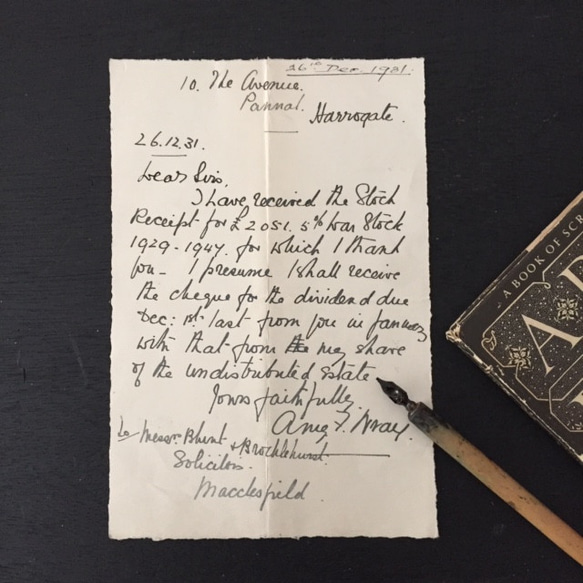 26th Dec. 1931.
10. The Avenue.
Pannal.
Harrogate.
26.12.31.
Dear Sirs,
I have received the Stock
Receipt for £2051. 5% War Stock
1929-1947. for which I thank
you - I presume I shall receive
the cheque for the dividend due
Dec: 1st last from you in January
with that from the my share
of the undistributed Estate
Yours faithfully,
Amy F. Wray.
To Messrs Blunt & Brocklehurst
Solicitors.
Macclesfield
A BOOK OF SCR
A